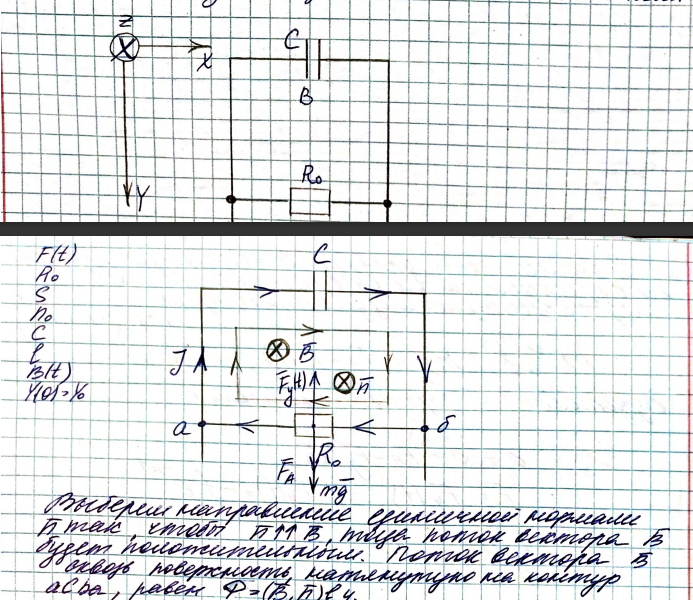 Z
X
C
B
Y
R₀
F(t)
R₀
S
n₀
C
l
B(t)
Y(0)=Y₀
C
J
B̅
F̅y(t)
n̅
a
б
R₀
F̅A
mg̅
Выберем направление единичной нормали
n̅ так, чтобы n̅↑↑B̅, тогда поток вектора B̅
будет положительным. Поток вектора B̅
сквозь поверхность, натянутую на контур
аСба, равен Φ=(B̅,n̅)ly.